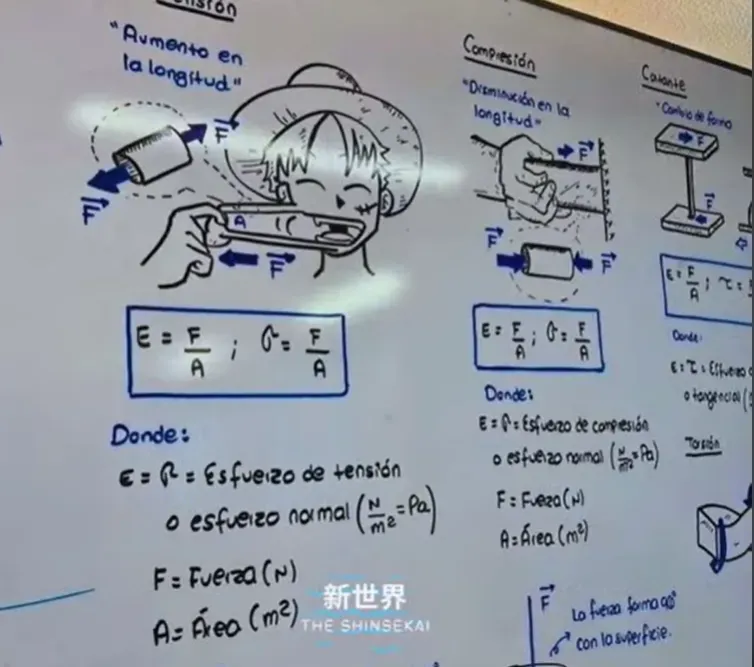 "Aumento en
la longitud"
F
F
A
F
E = F/A ; σ = F/A
Donde:
E = σ = Esfuerzo de tensión
o esfuerzo normal (N/m² = Pa)
F = Fuerza (N)
A = Área (m²)
Compresión
"Disminución en la
longitud"
F
F
F
E = F/A ; σ = F/A
Donde:
E = σ = Esfuerzo de compresión
o esfuerzo normal (N/m² = Pa)
F = Fueza (N)
A = Área (m²)
Cortante
"Cambio de forma
F
F
E = F/A ; τ =
Donde:
E = τ = Esfuerzo
o tangencial
Torsión
F
La fuerza forma 90°
con la superficie.
新世界
THE SHINSEKAI